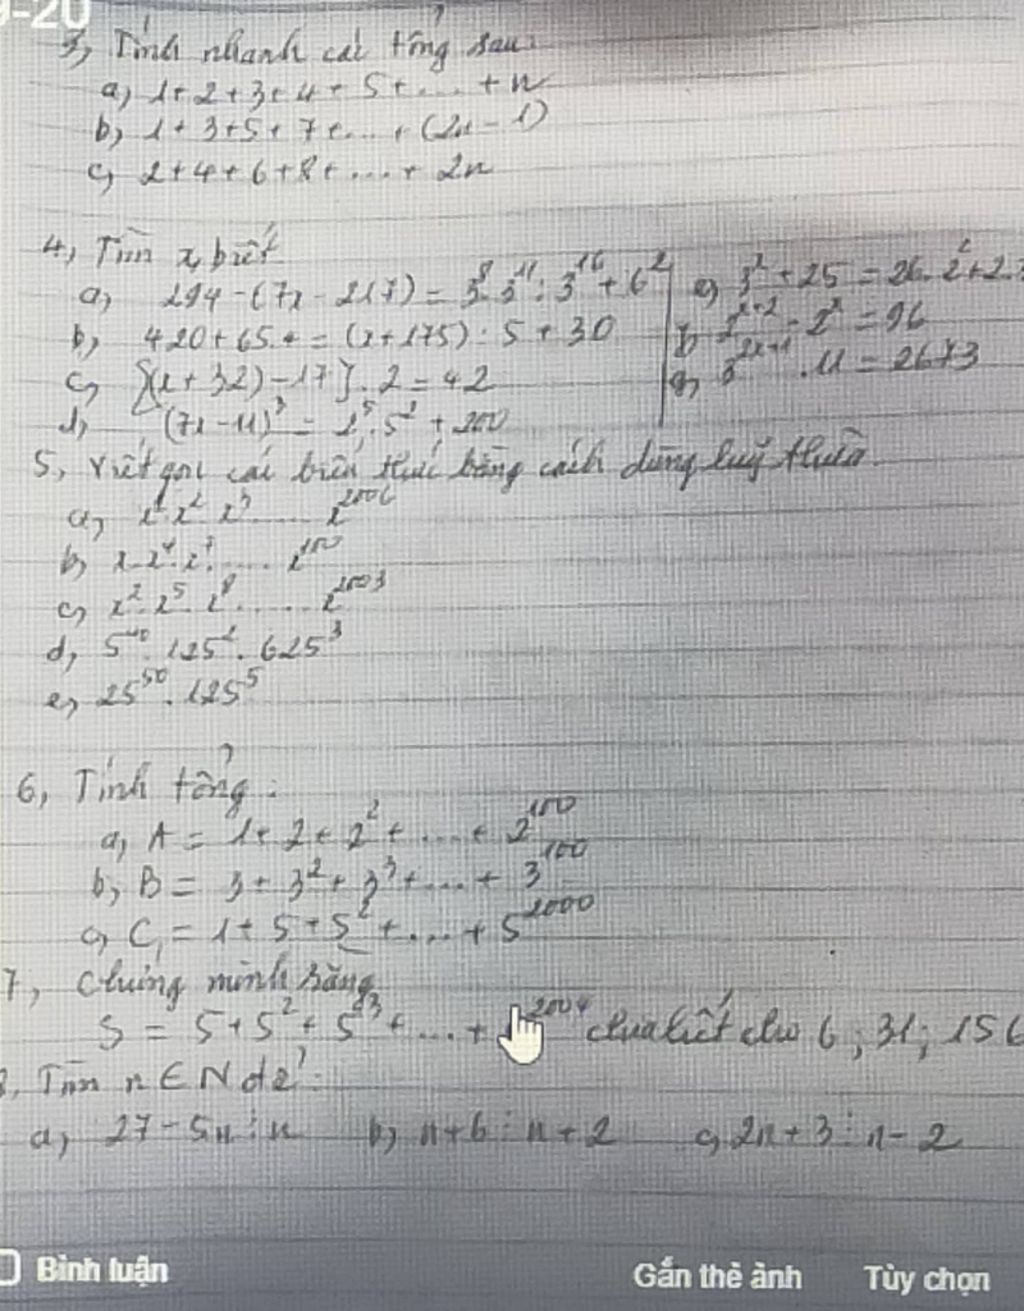 -20
3, Tính nhanh các tổng sau:
a, 1+2+3+4+5+...+n
b, 1+3+5+7+...+(2n-1)
c, 2+4+6+8+...+2n
4, Tìm x, biết
a, 294-(7x-217)=3⁸.3¹¹:3¹⁶+6²
b, 420+65.4=(x+175):5+30
c, [(x+32)-17].2=42
d, (7x-11)³=2⁵.5²+200
e, 3ˣ+25=26.2²+2.
2ˣ⁺²-2ˣ=96
g, 3²ˣ⁺¹.11=2673
5, Viết gọn các biểu thức bằng cách dùng luỹ thừa
a, x¹x²x³.....x²⁰⁰⁶
b, x.x⁴.x⁷.....x¹⁰⁰
c, x².x⁵.x⁸.....x²⁰⁰³
d, 125².625³
e, 25⁵⁰.125⁵
6, Tính tổng:
a, A=1+2+2²+...+2¹⁰⁰
b, B=3+3²+3³+...+3¹⁰⁰
c, C=1+5+5²+...+5²⁰⁰⁰
7, Chứng minh rằng
S=5+5²+5³+...+ ²⁰⁰⁴ chia hết cho 6; 31; 156
8, Tìm n∈N để:
a, 27-5n⋮n b, n+6⋮n+2 c, 2n+3⋮n-2
Bình luận Gắn thẻ ảnh Tùy chọn